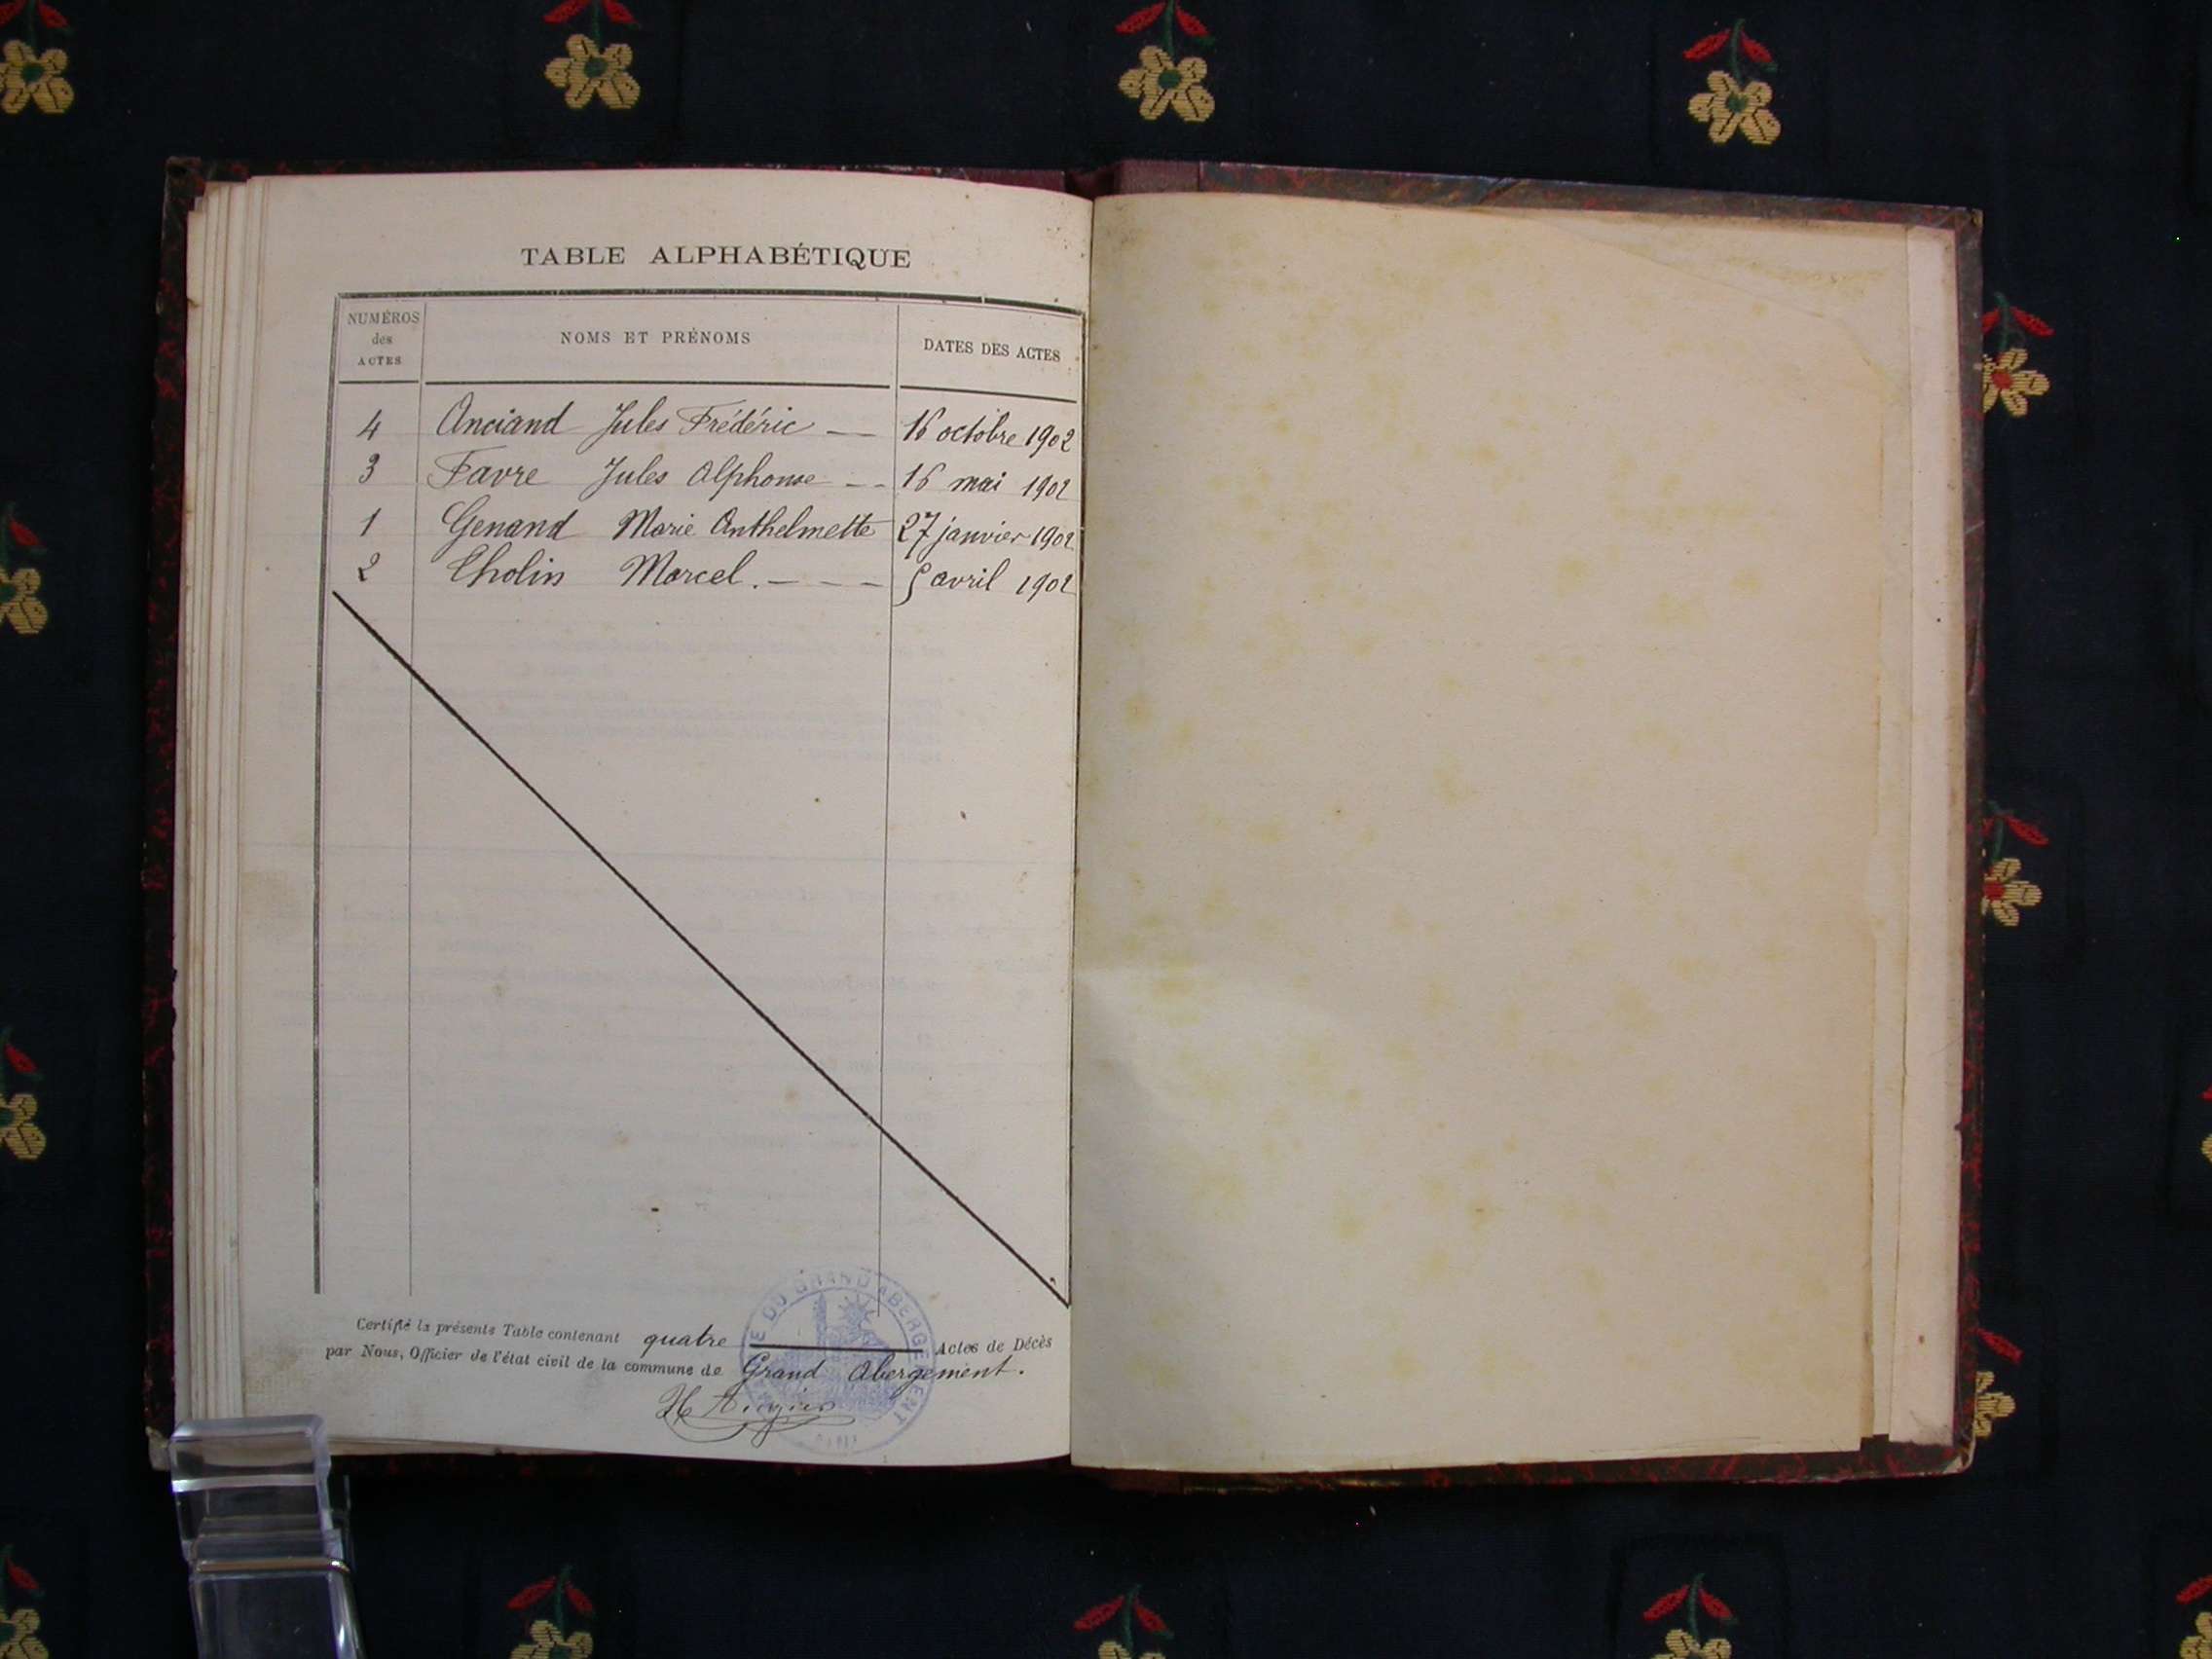 TABLE ALPHABÉTIQUE
NUMÉROS des ACTES NOMS ET PRÉNOMS DATES DES ACTES
4 Anciand Jules Frédéric — 16 octobre 1902
3 Favre Jules Alphonse - - 16 mai 1902
1 Genand Marie Anthelmette 27 janvier 1902
2 Tholin Marcel. - - - 5 avril 1902
Certifié la présente Table contenant quatre Actes de Décès
par Nous, Officier de l'état civil de la commune de Grand Abergement.
MAIRIE DU GRAND ABERGEMENT